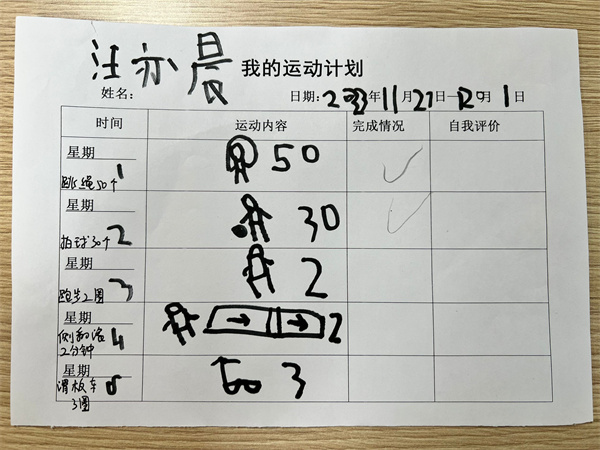 汪亦晨
我的运动计划
姓名:
日期: 2023年11月27日—12月1日
时间 运动内容 完成情况 自我评价
星期 1 50
跳绳50个
星期 2 30
拍球30个
星期 3 2
跑步2圈
星期 4 2
侧翻滚
2分钟
星期 5 3
滑板车
3圈